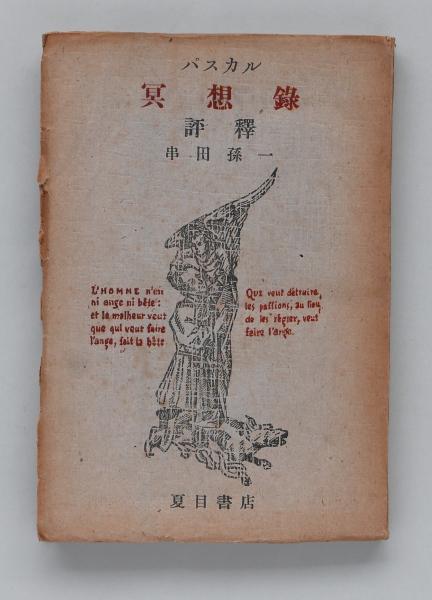 パスカル
冥想錄
評釋
串田孫一
L'HOMME n'est
ni ange ni bête:
et le malheur veut
que qui veut faire
l'ange, fait la bête
Qui veut détruire
les passions, au lieu
de les régler, veut
faire l'ange.
夏目書店